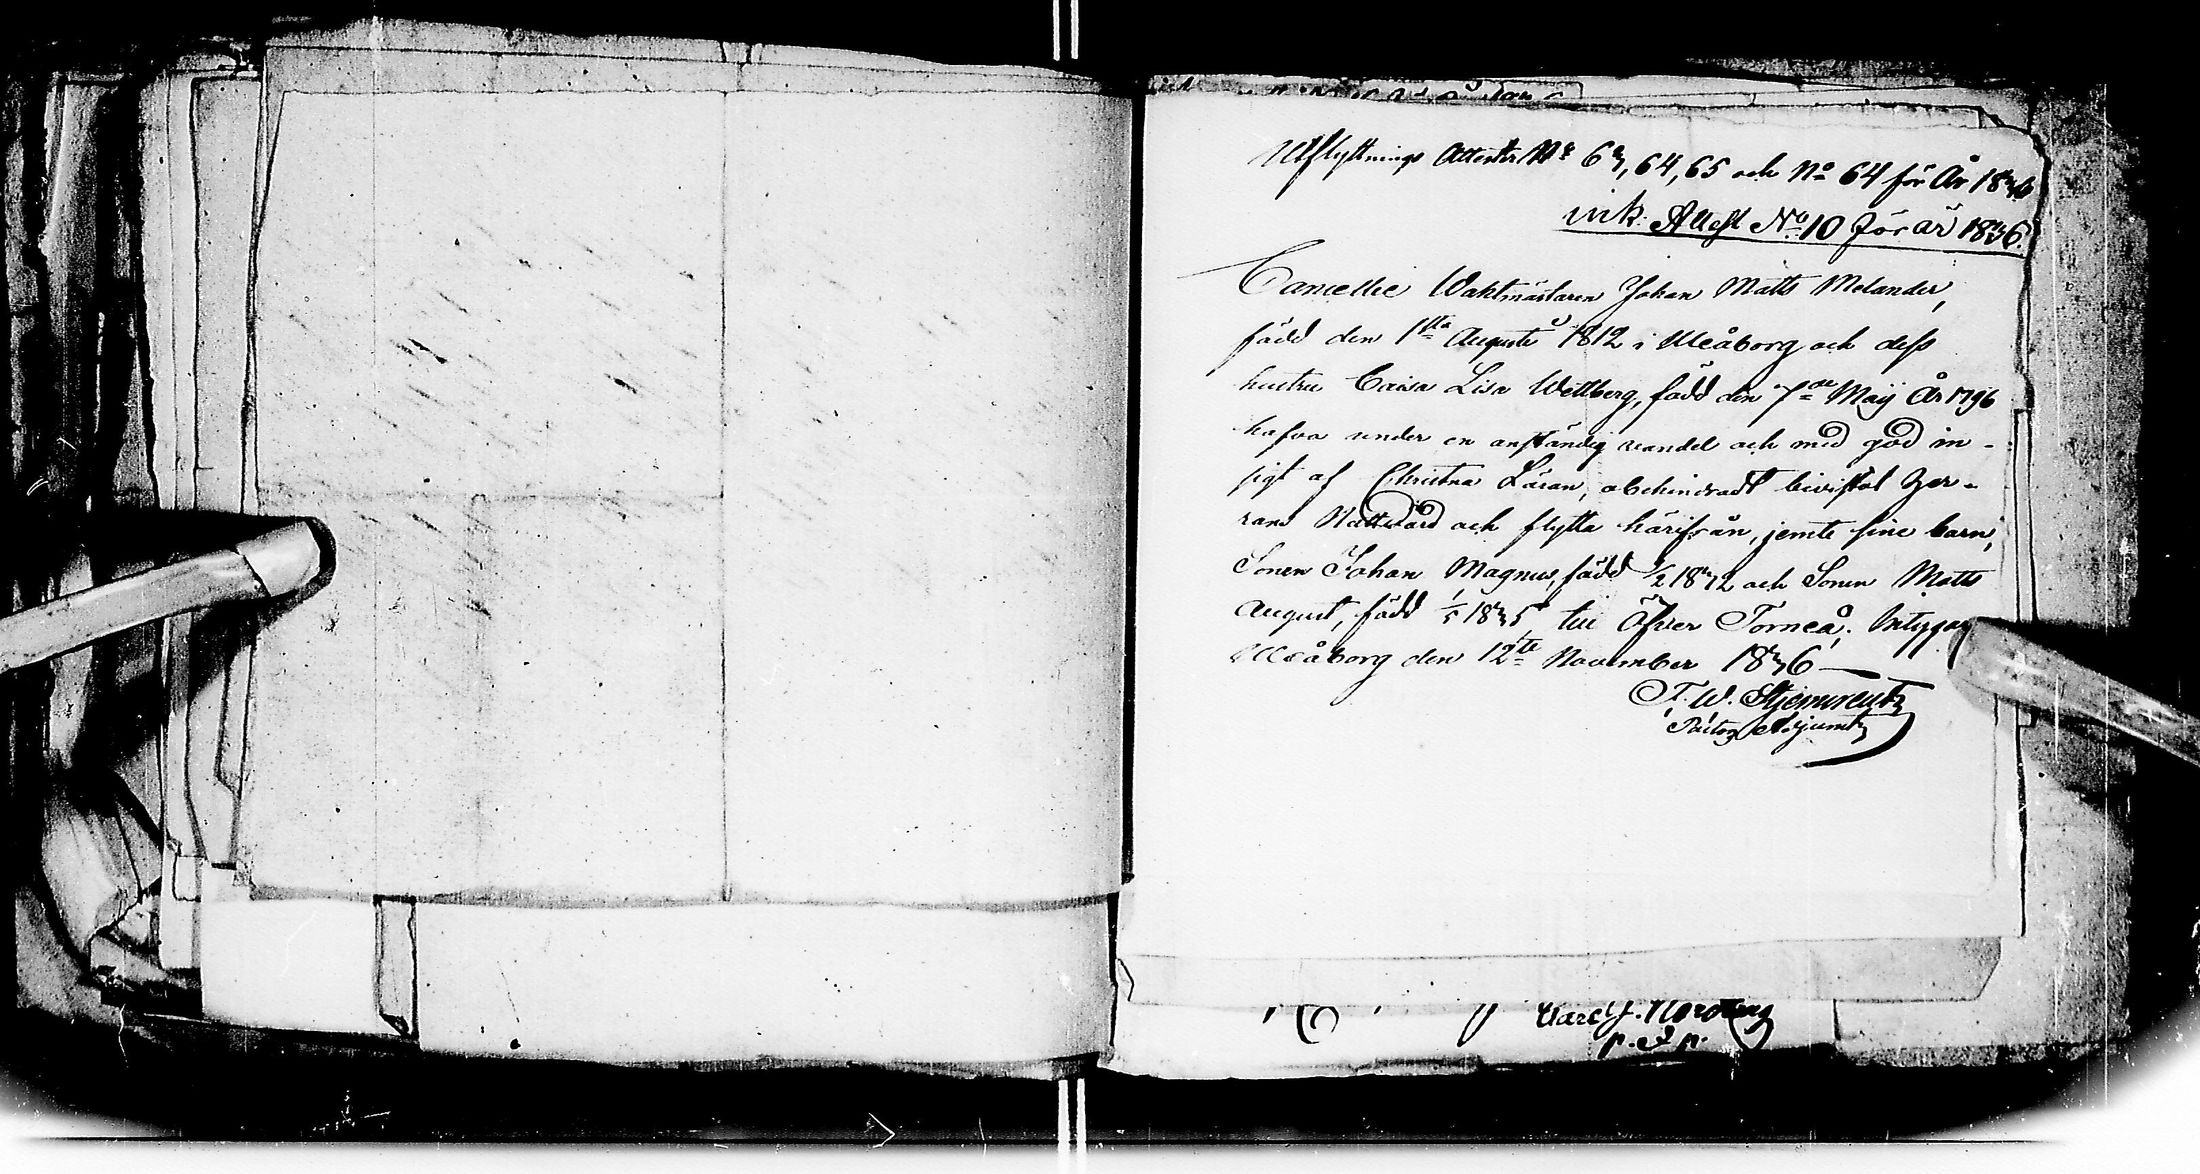 Utflyttnings Attester Nr 63, 64, 65 och No 64 för År 1836
ink. Attest No 10 för år 1836.
Cancellie Waktmästaren Johan Matts Melander,
född den 1sta Augusti 1812 i Uleåborg och dess
hustru Caisa Lisa Wettberg, född den 7de Maij År 1796
hafva under en anständig vandel och med god in-
sigt af Christna Läran, obehindradt bevistat Her-
rans Nattvard och flytta härifrån, jemte sine barn,
Sonen Johan Magnus, född 1/2 1832 och Sonen Matts
August, född 1/5 1835, till Öfver Torneå. Intygar
Uleåborg den 12te November 1836
F. W. Stjernvreutz
Pastors Adjunct
Carl J. Nordberg